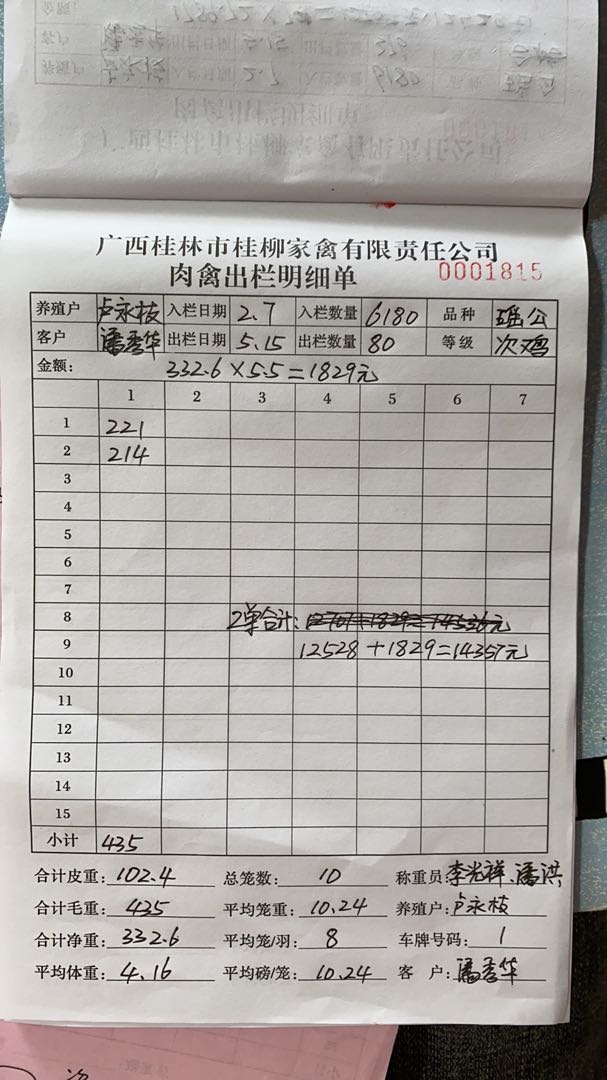 广西桂林市桂柳家禽有限责任公司
肉禽出栏明细单 0001815
养殖户 卢永枝 入栏日期 2.7 入栏数量 6180 品种 瑶公
客户 潘秀华 出栏日期 5.15 出栏数量 80 等级 次鸡
金额: 332.6×5.5=1829元
1 2 3 4 5 6 7
1 221
2 214
3
4
5
6
7
8 2单合计:
9 12528+1829=14357元
10
11
12
13
14
15
小计 435
合计皮重: 102.4 总笼数: 10 称重员: 李光祥、潘洪
合计毛重: 435 平均笼重: 10.24 养殖户: 卢永枝
合计净重: 332.6 平均笼/羽: 8 车牌号码: 1
平均体重: 4.16 平均磅/笼: 10.24 客户: 潘秀华